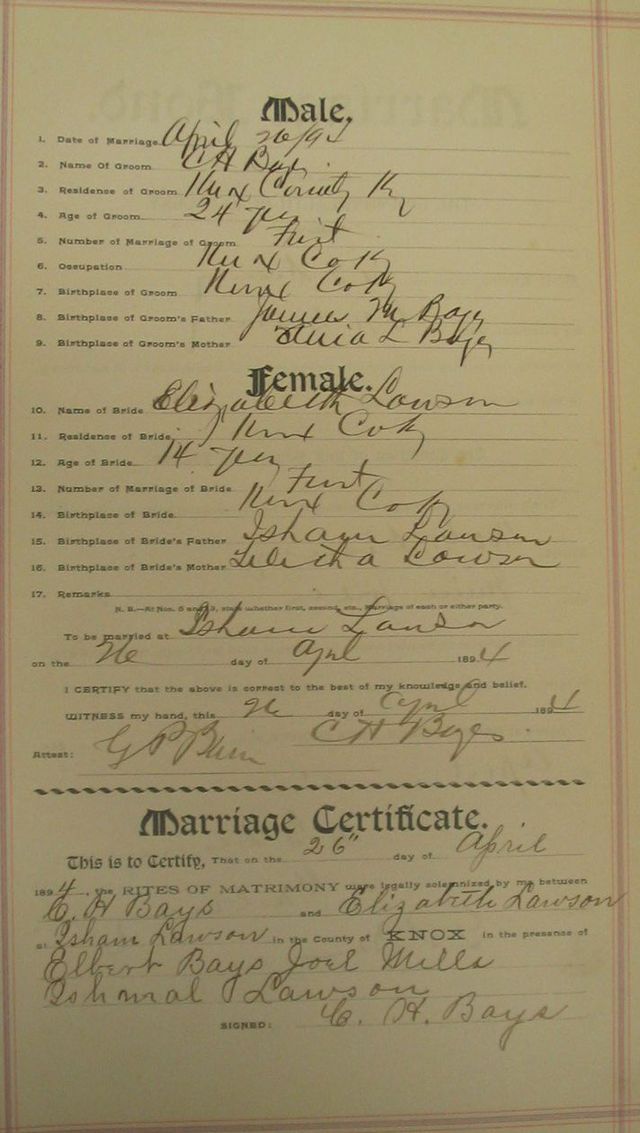 Male.
1. Date of Marriage April 26/94
2. Name Of Groom C H Bays
3. Residence of Groom Knox County Ky
4. Age of Groom 24 yrs
5. Number of Marriage of Groom First
6. Occupation Knox Co Ky
7. Birthplace of Groom Knox Co Ky
8. Birthplace of Groom's Father James M Bays
9. Birthplace of Groom's Mother L Bays
Female.
10. Name of Bride Elizabeth Lawson
11. Residence of Bride Knox Co Ky
12. Age of Bride 14 yrs
13. Number of Marriage of Bride First
14. Birthplace of Bride Knox Co Ky
15. Birthplace of Bride's Father Isham Lawson
16. Birthplace of Bride's Mother Lawson
17. Remarks
N. B.—At Nos. 5 and 13, state whether first, second, etc., Marriage of each or either party.
To be married at Isham Lawson
on the 26 day of Apl 1894
I CERTIFY that the above is correct to the best of my knowledge and belief.
WITNESS my hand, this 26 day of April 1894
C H Bays
Attest: G P
Marriage Certificate.
This is to Certify, That on the 26" day of April
1894, the RITES OF MATRIMONY were legally solemnized by me between
C. H Bays and Elizabeth Lawson
at Isham Lawson in the County of KNOX in the presence of
Elbert Bays Joel Mills
Lawson
SIGNED: C. H. Bays